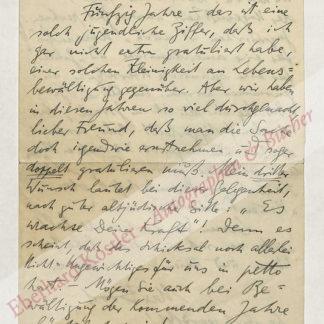 Fünfzig Jahre – das ist eine
solch jugendliche Ziffer, daß ich
gar nicht extra gratuliert habe,
einer solchen Kleinigkeit an Lebens=
bewältigung gegenüber. Aber wir haben
in diesen Jahren so viel durchgemacht,
lieber Freund, daß man die
doch irgendwie ernstnehmen und sogar
doppelt gratulieren muß. Mein dritter
Wunsch lautet bei dieser Gelegenheit,
nach guter altjüdischer Sitte: „Es
wachse Deine Kraft"! Denn es
scheint, daß das Schicksal noch allerlei
Nicht-Ungewichtiges für uns in petto
hat. – Mögen Sie auch bei Be=
wältigung der kommenden Jahre
Eberhard Köstler · Autographen & Bücher